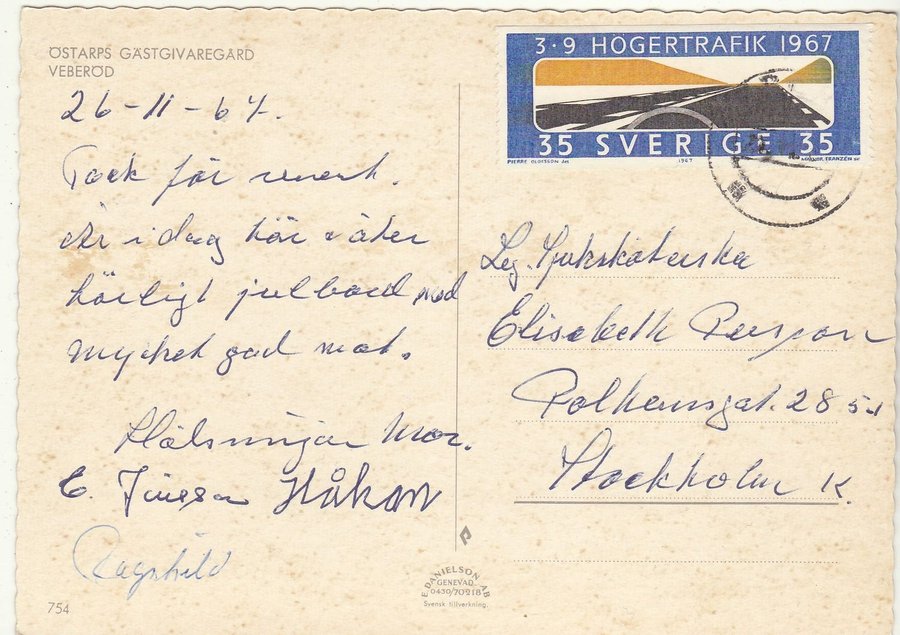 ÖSTARPS GÄSTGIVAREGÅRD
VEBERÖD
26-11-67.
Tack för senast.
Är i dag här & äter
härligt julbord med
mycket god mat.
Hälsningar Mor.
E. Jönsson Håkan
Ragnhild
754
3·9 HÖGERTRAFIK 1967
35 SVERIGE 35
PIERRE OLOFSSON del
1967
FRANZÉN sc
Leg. Sjuksköterska
Elisabeth Persson
Polhemsgat. 28
Stockholm K.
E. DANIELSON AB
GENEVAD
0430/70218
Svensk tillverkning.